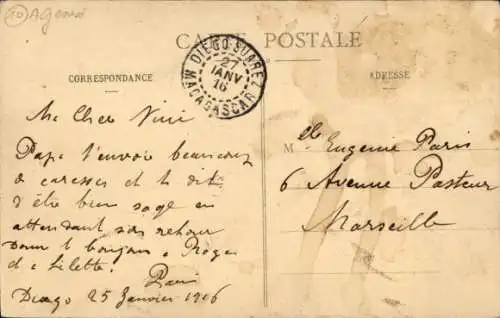 10 Agensi
CARTE POSTALE
DIEGO-SUAREZ
27
JANV
16
MADAGASCAR
CORRESPONDANCE
Ma Cher Nini
Papa t'envoie beaucoup
de caresses et te dit
d'être bien sage en
attendant son retour
Donne le bonjour à Roger
et à Lilette.
Paris
Diego 25 Janvier 1916
ADRESSE
Mlle Eugenie Paris
6 Avenue Pasteur
Marseille